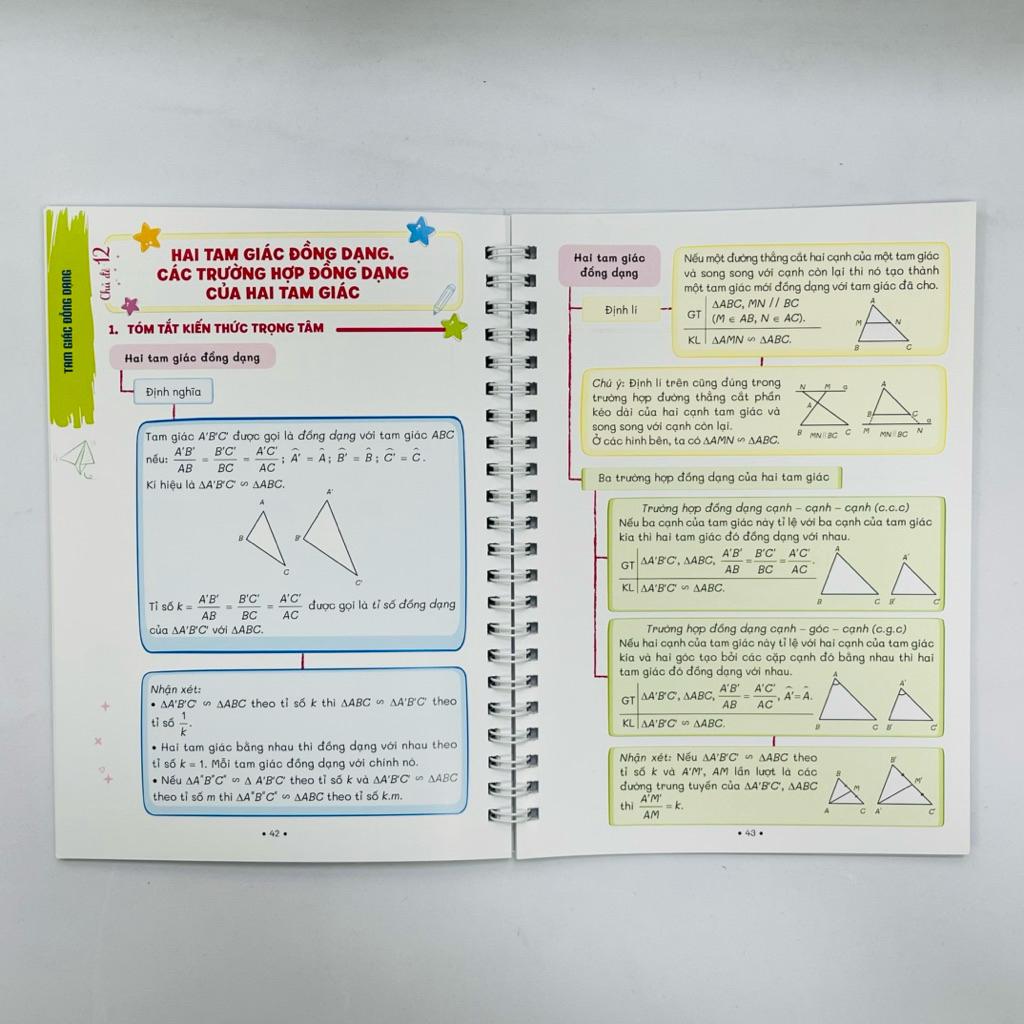 TAM GIÁC ĐỒNG DẠNG
Chủ đề 12
HAI TAM GIÁC ĐỒNG DẠNG.
CÁC TRƯỜNG HỢP ĐỒNG DẠNG
CỦA HAI TAM GIÁC
1. TÓM TẮT KIẾN THỨC TRỌNG TÂM
Hai tam giác đồng dạng
Định nghĩa
Tam giác A'B'C' được gọi là đồng dạng với tam giác ABC
nếu: A'B'/AB = B'C'/BC = A'C'/AC; Â' = Â; B̂' = B̂; Ĉ' = Ĉ.
Kí hiệu là ΔA'B'C' ∽ ΔABC.
A A'
B B'
C C'
Tỉ số k = A'B'/AB = B'C'/BC = A'C'/AC được gọi là tỉ số đồng dạng
của ΔA'B'C' với ΔABC.
Nhận xét:
• ΔA'B'C' ∽ ΔABC theo tỉ số k thì ΔABC ∽ ΔA'B'C' theo
tỉ số 1/k.
• Hai tam giác bằng nhau thì đồng dạng với nhau theo
tỉ số k = 1. Mỗi tam giác đồng dạng với chính nó.
• Nếu ΔA"B"C" ∽ Δ A'B'C' theo tỉ số k và ΔA'B'C' ∽ ΔABC
theo tỉ số m thì ΔA"B"C" ∽ ΔABC theo tỉ số k.m.
• 42 •
Hai tam giác
đồng dạng
Định lí
Nếu một đường thẳng cắt hai cạnh của một tam giác
và song song với cạnh còn lại thì nó tạo thành
một tam giác mới đồng dạng với tam giác đã cho.
GT ΔABC, MN // BC
(M ∈ AB, N ∈ AC).
KL ΔAMN ∽ ΔABC.
A
M N
B C
Chú ý: Định lí trên cũng đúng trong
trường hợp đường thẳng cắt phần
kéo dài của hai cạnh tam giác và
song song với cạnh còn lại.
Ở các hình bên, ta có ΔAMN ∽ ΔABC.
N M a
A
B C
MN//BC
A
B C
M N a
MN//BC
Ba trường hợp đồng dạng của hai tam giác
Trường hợp đồng dạng cạnh – cạnh – cạnh (c.c.c)
Nếu ba cạnh của tam giác này tỉ lệ với ba cạnh của tam giác
kia thì hai tam giác đó đồng dạng với nhau.
GT ΔA'B'C', ΔABC, A'B'/AB = B'C'/BC = A'C'/AC.
KL ΔA'B'C' ∽ ΔABC.
A A'
B C B' C'
Trường hợp đồng dạng cạnh – góc – cạnh (c.g.c)
Nếu hai cạnh của tam giác này tỉ lệ với hai cạnh của tam giác
kia và hai góc tạo bởi các cặp cạnh đó bằng nhau thì hai
tam giác đó đồng dạng với nhau.
GT ΔA'B'C', ΔABC, A'B'/AB = A'C'/AC, Â' = Â.
KL ΔA'B'C' ∽ ΔABC.
A A'
B C B' C'
Nhận xét: Nếu ΔA'B'C' ∽ ΔABC theo
tỉ số k và A'M', AM lần lượt là các
đường trung tuyến của ΔA'B'C', ΔABC
thì A'M'/AM = k.
B B'
M M'
A C A' C'
• 43 •